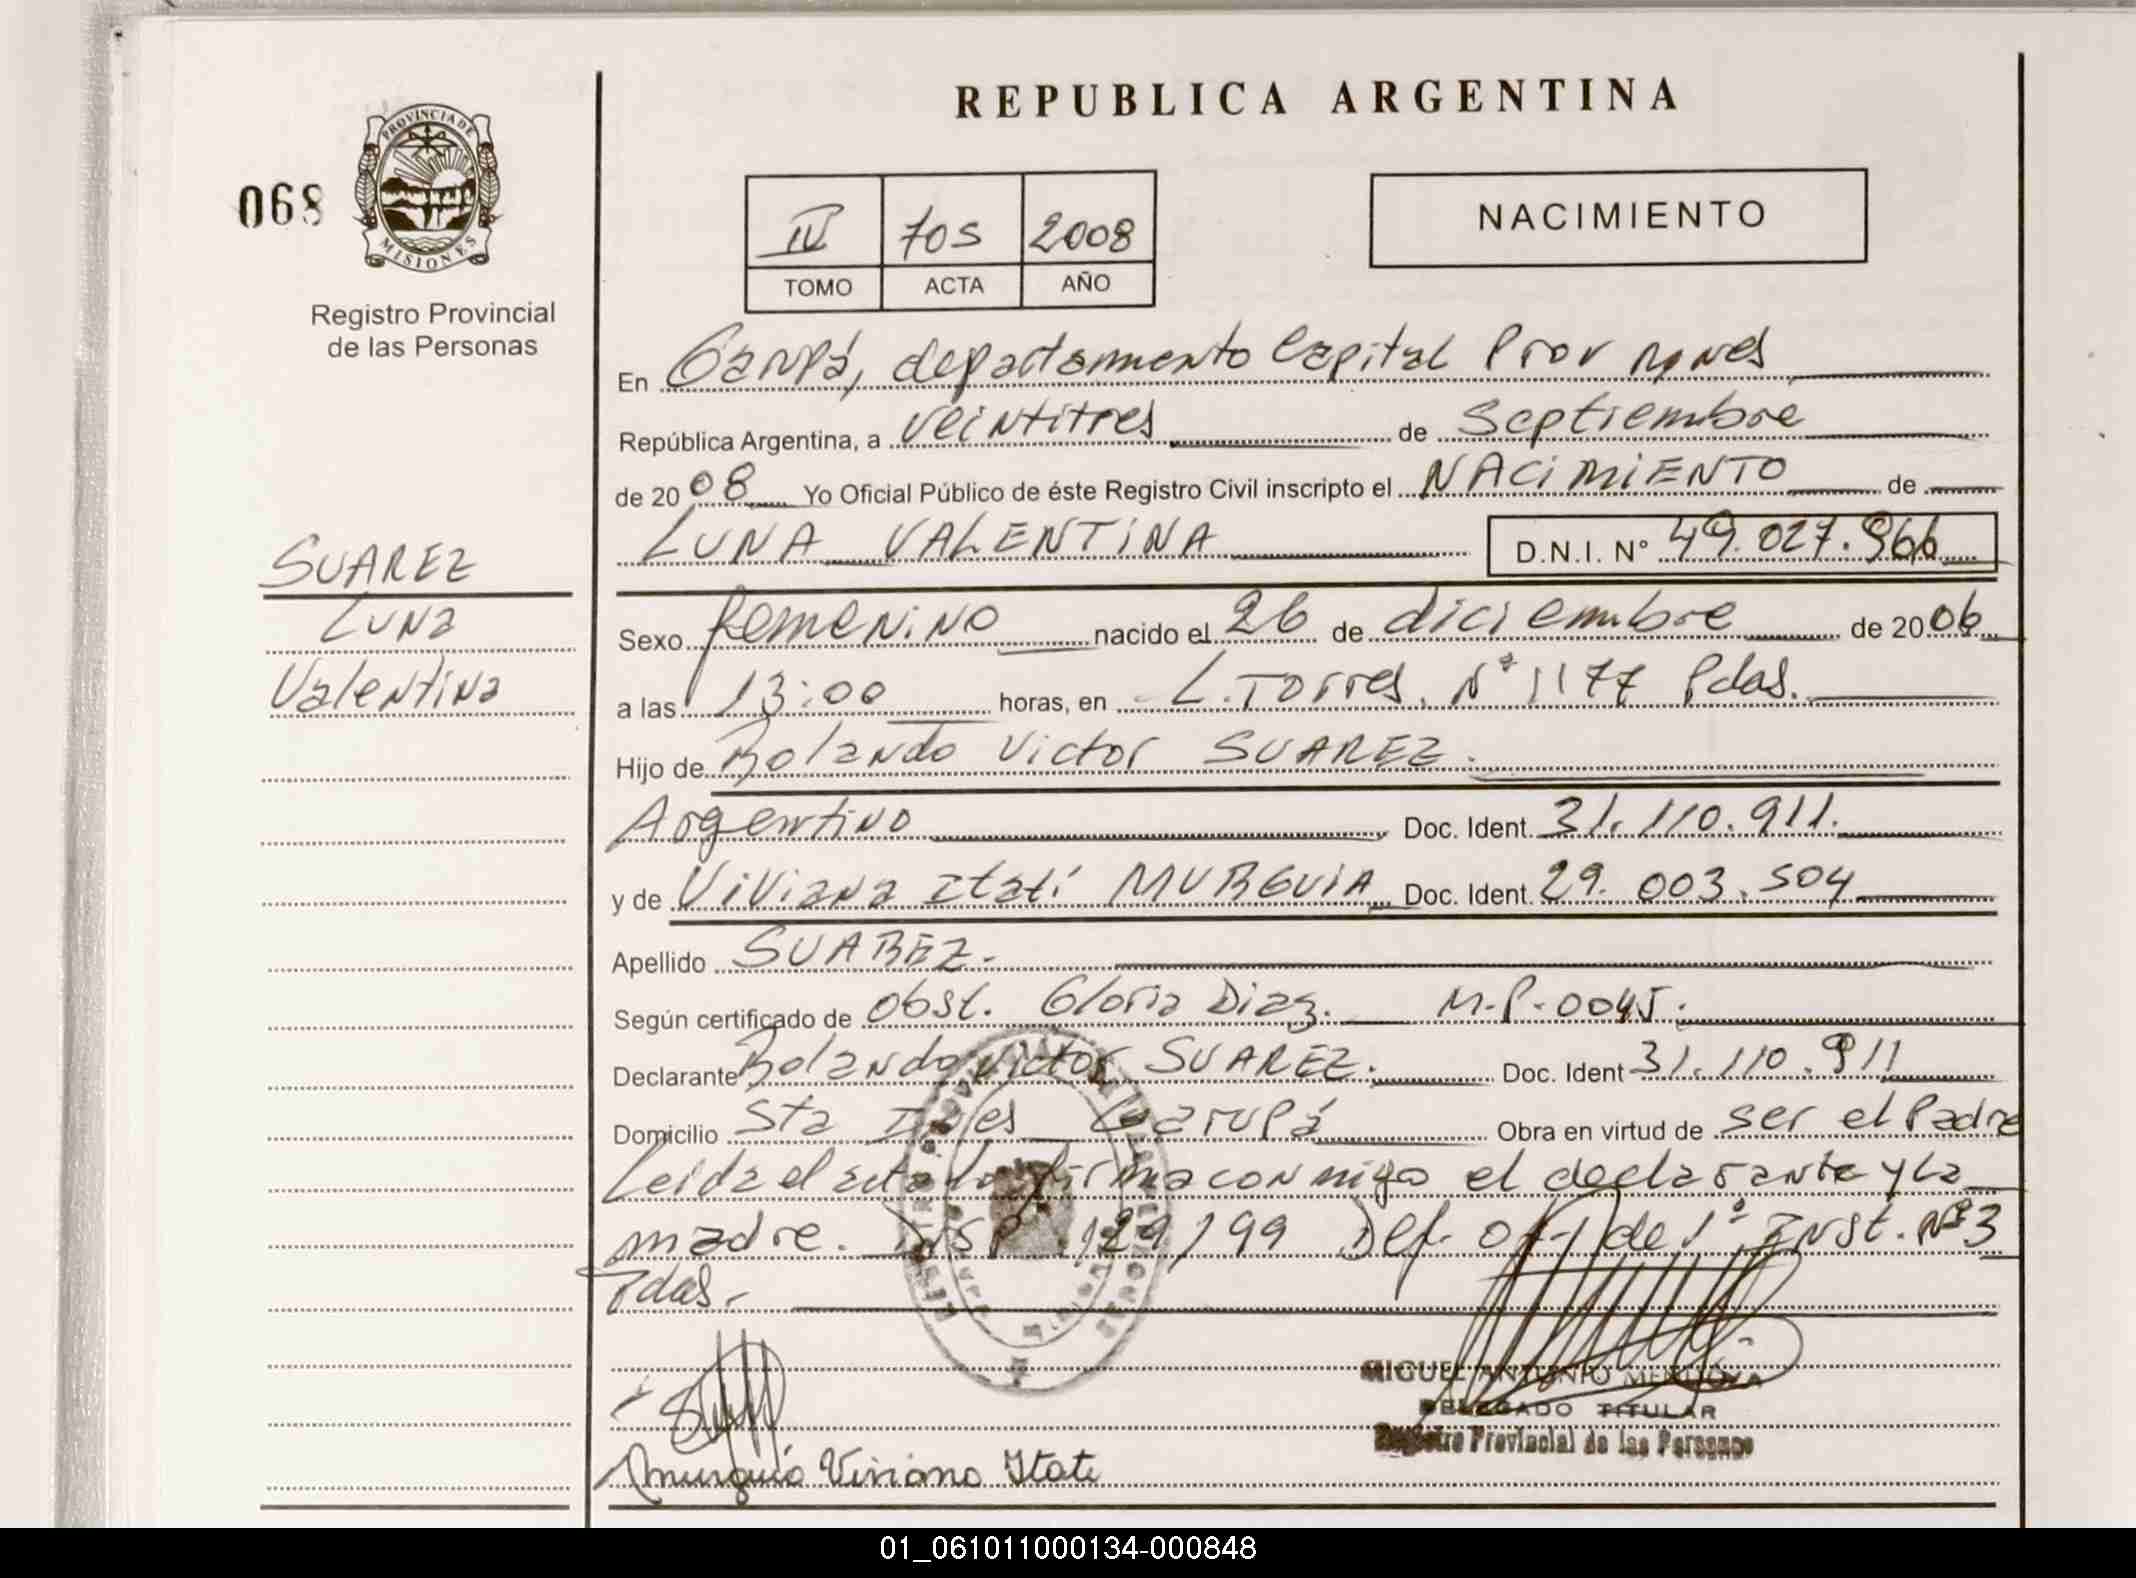 REPUBLICA ARGENTINA
068
PROVINCIA DE
MISIONES
Registro Provincial
de las Personas
IV 705 2008
TOMO ACTA AÑO
NACIMIENTO
En Garupá, departamento Capital Prov Mnes
República Argentina, a veintitres de Septiembre
de 2008 Yo Oficial Público de éste Registro Civil inscripto el NACIMIENTO de
LUNA VALENTINA D.N.I. N° 49.027.966
SUAREZ
Luna
Valentina
Sexo femenino nacido el 26 de diciembre de 2006
a las 13:00 horas, en L. Torres. N° 1177 Pdas.
Hijo de Rolando Victor SUAREZ.
Argentino Doc. Ident. 31.110.911.
y de Viviana Itatí MURGUIA Doc. Ident. 29.003.504
Apellido SUAREZ.
Según certificado de Obst. Gloria Diaz. M.P. 0045.
Declarante Rolando Victor SUAREZ. Doc. Ident 31.110.911
Domicilio Sta Ines Garupá Obra en virtud de ser el Padre
Leida el acta la firma conmigo el declarante y la
madre. DISP 129/99 Def. Of. de 1° Inst. N°3
Pdas.
MIGUEL ANTONIO
DELEGADO TITULAR
Registro Provincial de las Personas
Murguia Viviana Itati
01_061011000134-000848